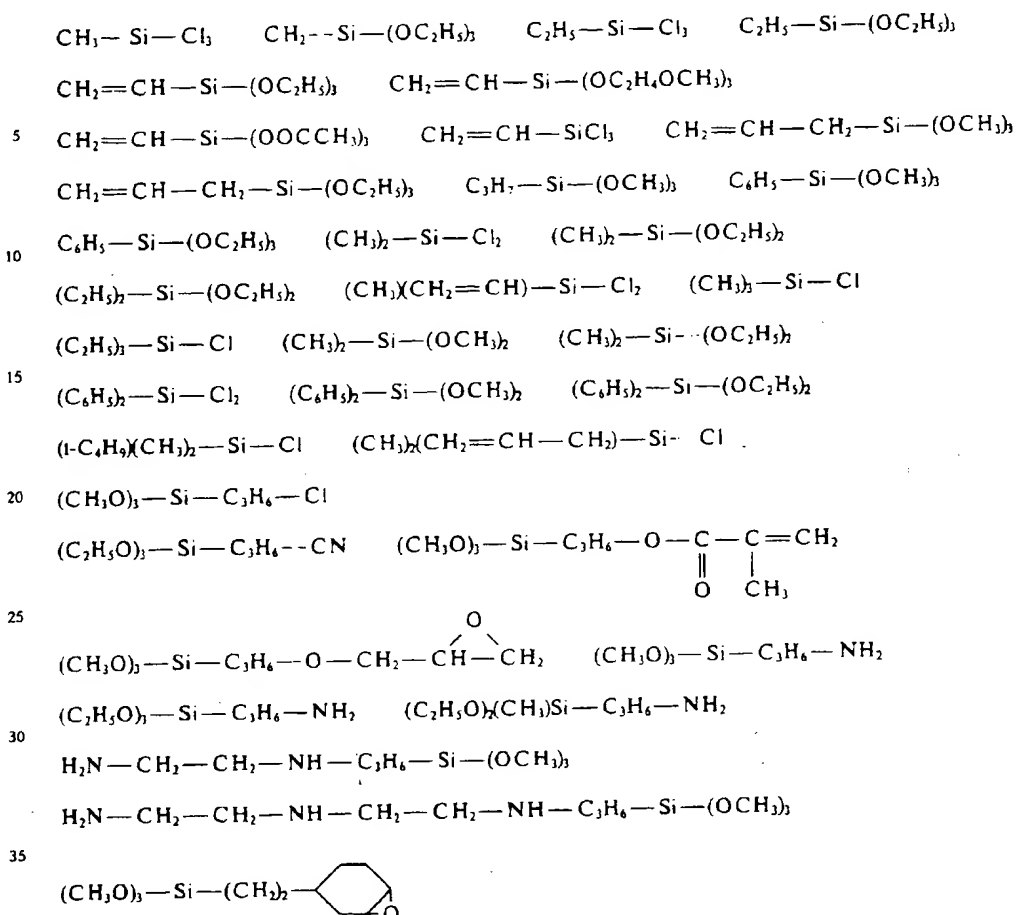 CH₃—Si—Cl₃ CH₂--Si—(OC₂H₅)₃ C₂H₅—Si—Cl₃ C₂H₅—Si—(OC₂H₅)₃
CH₂=CH—Si—(OC₂H₅)₃ CH₂=CH—Si—(OC₂H₄OCH₃)₃
5 CH₂=CH—Si—(OOCCH₃)₃ CH₂=CH—SiCl₃ CH₂=CH—CH₂—Si—(OCH₃)₃
CH₂=CH—CH₂—Si—(OC₂H₅)₃ C₃H₇—Si—(OCH₃)₃ C₆H₅—Si—(OCH₃)₃
C₆H₅—Si—(OC₂H₅)₃ (CH₃)₂—Si—Cl₂ (CH₃)₂—Si—(OC₂H₅)₂
10
(C₂H₅)₂—Si—(OC₂H₅)₂ (CH₃)(CH₂=CH)—Si—Cl₂ (CH₃)₃—Si—Cl
(C₂H₅)₃—Si—Cl (CH₃)₂—Si—(OCH₃)₂ (CH₃)₂—Si--(OC₂H₅)₂
15
(C₆H₅)₂—Si—Cl₂ (C₆H₅)₂—Si—(OCH₃)₂ (C₆H₅)₂—Si—(OC₂H₅)₂
(1-C₄H₉)(CH₃)₂—Si—Cl (CH₃)₂(CH₂=CH—CH₂)—Si- Cl
20 (CH₃O)₃—Si—C₃H₆—Cl
(C₂H₅O)₃—Si—C₃H₆--CN (CH₃O)₃—Si—C₃H₆—O—C—C=CH₂
O CH₃
25
O
(CH₃O)₃—Si—C₃H₆—O—CH₂—CH—CH₂ (CH₃O)₃—Si—C₃H₆—NH₂
(C₂H₅O)₃—Si—C₃H₆—NH₂ (C₂H₅O)₂(CH₃)Si—C₃H₆—NH₂
30
H₂N—CH₂—CH₂—NH—C₃H₆—Si—(OCH₃)₃
H₂N—CH₂—CH₂—NH—CH₂—CH₂—NH—C₃H₆—Si—(OCH₃)₃
35
(CH₃O)₃—Si—(CH₂)₂— O